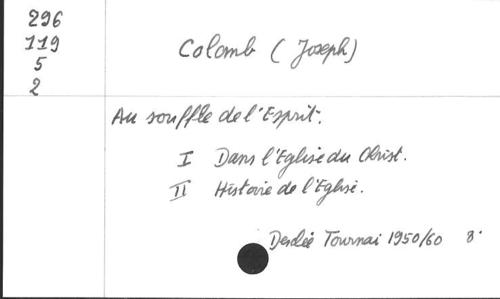 296
119
5
2
Colomb (Joseph)
Au souffle de l'Esprit.
I Dans l'Eglise du Christ.
II Histoire de l'Eglise.
Desclée Tournai 1950/60 8°